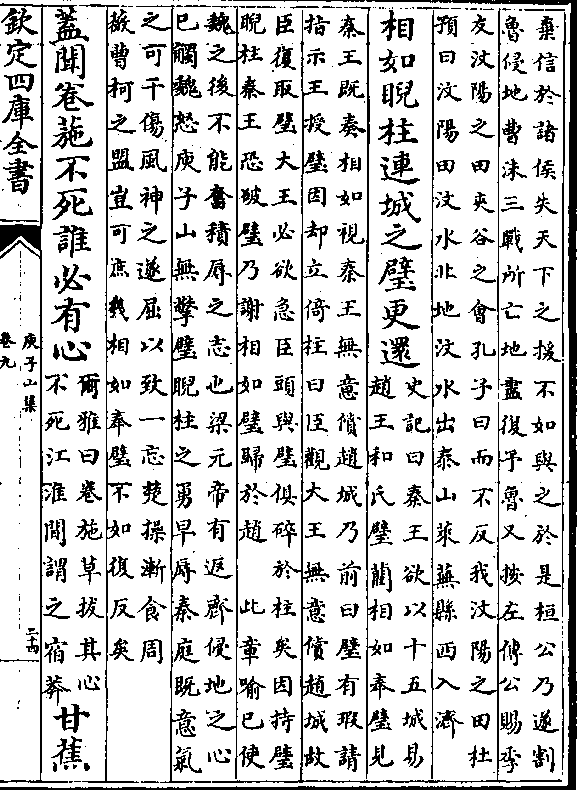 棄信於諸侯失天下之援不如與之於是桓公乃遂割
魯侵地曹沬三戰所亡地盡復予魯又按左傳公賜季
友汶陽之田夾谷之會孔子曰而不反我汶陽之田杜
預曰汶陽田汶水北地汶水出泰山萊蕪縣西入濟
相如睨柱連城之璧更還
史記曰秦王欲以十五城易
趙王和氏璧藺相如奉璧見
秦王既奏相如視秦王無意償趙城乃前曰璧有瑕請
指示王授璧因却立倚柱曰臣觀大王無意償趙城故
臣復取璧大王必欲急臣頭與璧俱碎於柱矣因持璧
睨柱秦王恐破璧乃謝相如璧歸於趙 此章喻已使
魏之後不能奮積辱之志也梁元帝有返齊侵地之心
已觸魏怒庾子山無擎璧睨柱之勇早辱秦庭既意氣
之可干傷風神之遂屈以致一忘楚操漸食周
薇曹柯之盟豈可庶幾相如奉璧不如復反矣
蓋聞卷葹不死誰必有心
爾雅曰卷施草拔其心
不死江淮間謂之宿莽
甘蕉
欽定四庫全書
庾子山集
卷九
二十四